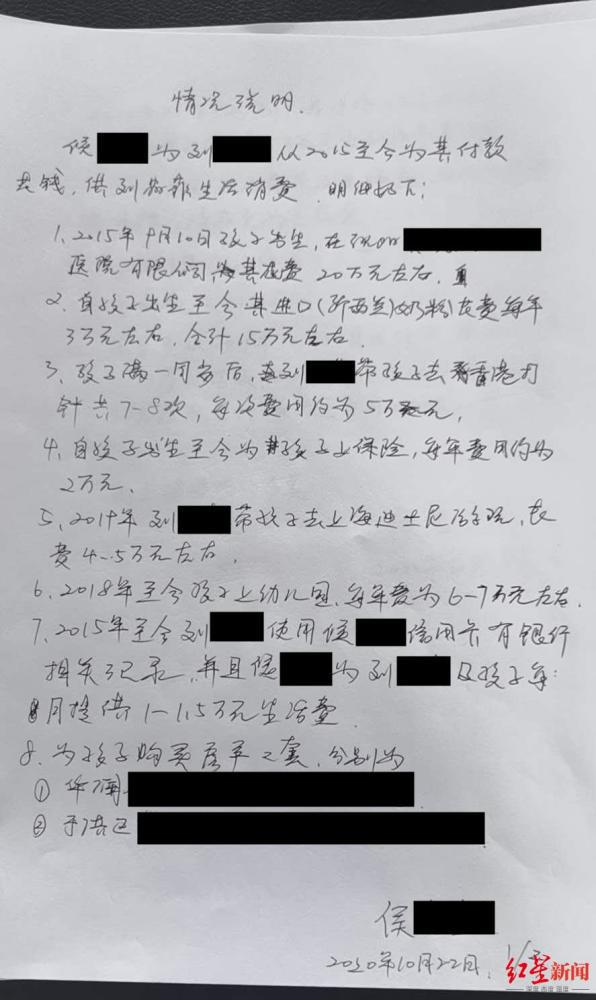 情况说明.
侯 为刘 从2015至今为其付款
花钱,供刘 生活消费.明细如下:
1、2015年9月10日孩子出生,在
医院有限公司为其花费 20万元左右.
2、自孩子出生至今其进口(新西兰)奶粉花费每年
3万元左右,合计15万元左右.
3、孩子满一周岁后, 刘 带孩子去香港打
针共7-8次,每次费用约为5万元.
4、自孩子出生至今为孩子上保险,每年费用约为
2万元.
5、2019年刘 带孩子去上海迪士尼 ,花
费4-5万元左右.
6、2018年至今孩子上幼儿园,每年费为6-7万元左右.
7、2015年至今刘 使用侯 信用卡有银行
相关记录,并且侯 为刘 及孩子每
月提供1-1.5万元生活费.
8、为孩子购买房平二套,分别为
① 华润
② 于洪区
侯
2020年10月22日.
红星新闻
深度 态度 温度